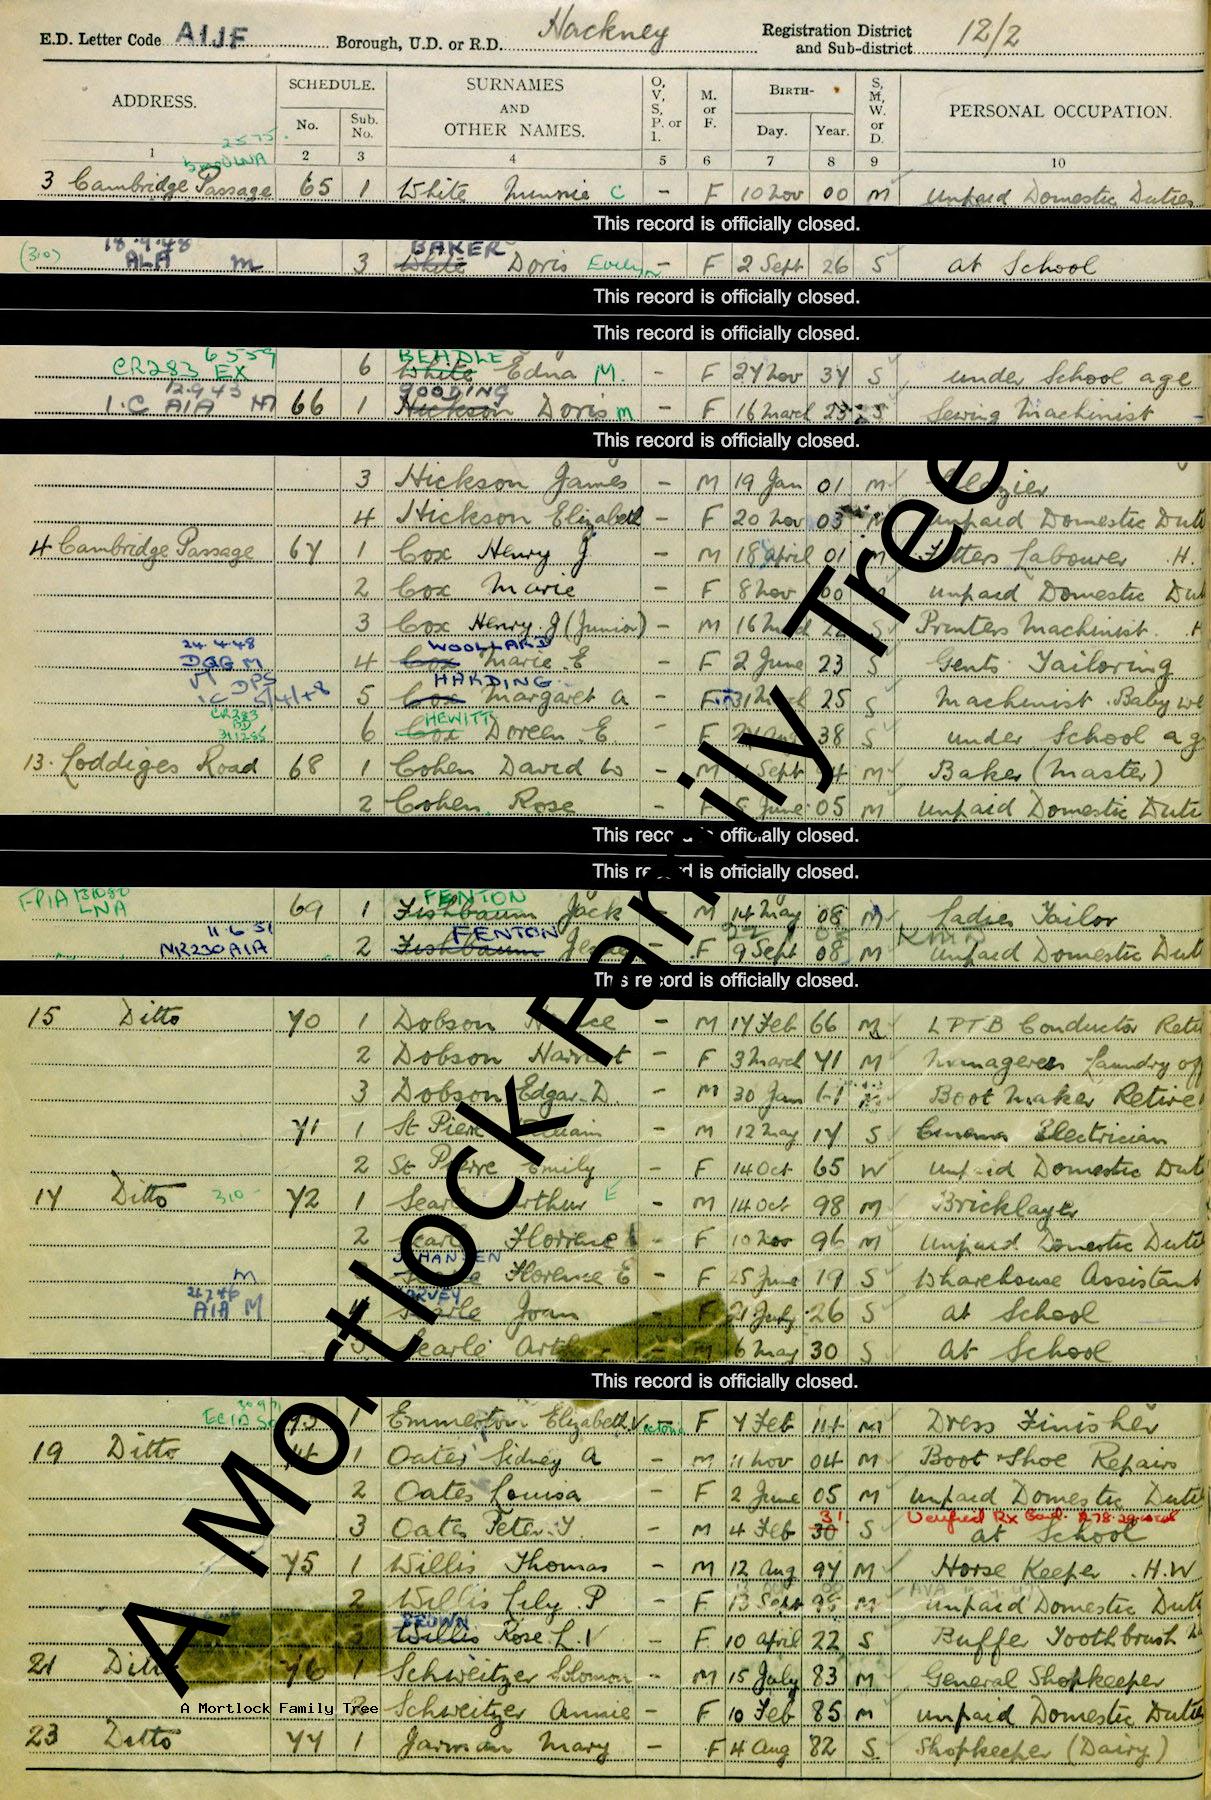 E.D. Letter Code AIJF Borough, U.D. or R.D. Hackney Registration District and Sub-district 12/2
ADDRESS. SCHEDULE. No. Sub. No. SURNAMES AND OTHER NAMES. O, V, S, P. or I. M. or F. BIRTH- Day. Year. S, M, W. or D. PERSONAL OCCUPATION.
1 2 3 4 5 6 7 8 9 10
3 Cambridge Passage 65 1 White Minnie C - F 10 Nov 00 M Unpaid Domestic Duties
This record is officially closed.
18.9.48 BAKER
(310) ALA m 3 White Doris Evelyn - F 2 Sept 26 S at School
This record is officially closed.
This record is officially closed.
6559 BEADLE
CR283 EX 6 White Edna M. - F 27 Nov 37 S under School age
12.9.43 GOODING
I.C A1A M 66 1 Hickson Doris m - F 16 March 23 S Sewing Machinist
This record is officially closed.
3 Hickson James - M 19 Jan 01 M Glazier
4 Hickson Elizabeth - F 20 Nov 03 M unpaid Domestic Duti
4 Cambridge Passage 67 1 Cox Henry J - M 18 April 01 M Fitters Labourer .H.
2 Cox Marie - F 8 Nov 00 unpaid Domestic Du
3 Cox Henry J (Junior) - M 16 S Printers Machinist.
24.4.48 WOOLLARD
DGG M 4 Cox Marie E - F 2 June 23 S Gents Tailoring
HARDING
5/4/48 5 Cox Margaret A F 31 25 S Machinist. Baby we
CR283 HEWITT
31/12/55 6 Cox Doreen E. - F 38 S under School ag
13. Loddiges Road 68 1 Cohen David W - M Sept M Baker (Master)
2 Cohen Rose - F 5 June 05 M unpaid Domestic Duti
This record is officially closed.
This record is officially closed.
FENTON
LNA 69 1 Fishbaum Jack - M 14 May 08 M Ladies Tailor
11.6.51 FENTON
NR230 A1A 2 Fishbaum - F 9 Sept 08 M unpaid Domestic Duti
This record is officially closed.
15 Ditto 70 1 Dobson - M 17 Feb 66 M LPTB Conductor Reti
2 Dobson Harriet - F 3 March 71 M Manageress Laundry off
3 Dobson Edgar D. - M 30 Jan Boot Maker Retired
71 1 St Pierre William - M 12 May 17 S Cinema Electrician
2 St Pierre Emily - F 14 Oct 65 W unpaid Domestic Duti
17 Ditto 310 72 1 Searle Arthur E - M 14 Oct 98 M Bricklayer
2 Searle Florence - F 10 Nov 96 M Unpaid Domestic Duti
JOHANSEN
M 3 Searle Florence E - F 25 June 19 S Warehouse Assistant
26.7.46 HARVEY
A1A M 4 Searle Joan - F 21 July 26 S at School
5 Searle Arth - M 6 May 30 S at School
This record is officially closed.
73 1 Emmerton Elizabeth Victoria F 7 Feb 14 M Dress Finisher
19 Ditto 74 1 Oates Sidney A - M 11 Nov 04 M Boot & Shoe Repairs
2 Oates Louisa - F 2 June 05 M unpaid Domestic Duti
31
3 Oates Peter - M 4 Feb 30 S at School
75 1 Willis Thomas - M 12 Aug 97 M Horse Keeper .H.W
2 Willis Lily P - F 13 Sept 98 M unpaid Domestic Duti
BROWN
3 Willis Rose L.V - F 10 April 22 S Buffer Toothbrush
21 Ditto 76 1 Schweitzer Solomon - M 15 July 83 M General Shopkeeper
2 Schweitzer Annie - F 10 Feb 85 M unpaid Domestic Duties
23 Ditto 77 1 Jarman Mary - F 4 Aug 82 S. Shopkeeper (Dairy)
A Mortlock Family Tree
A Mortlock Family Tree